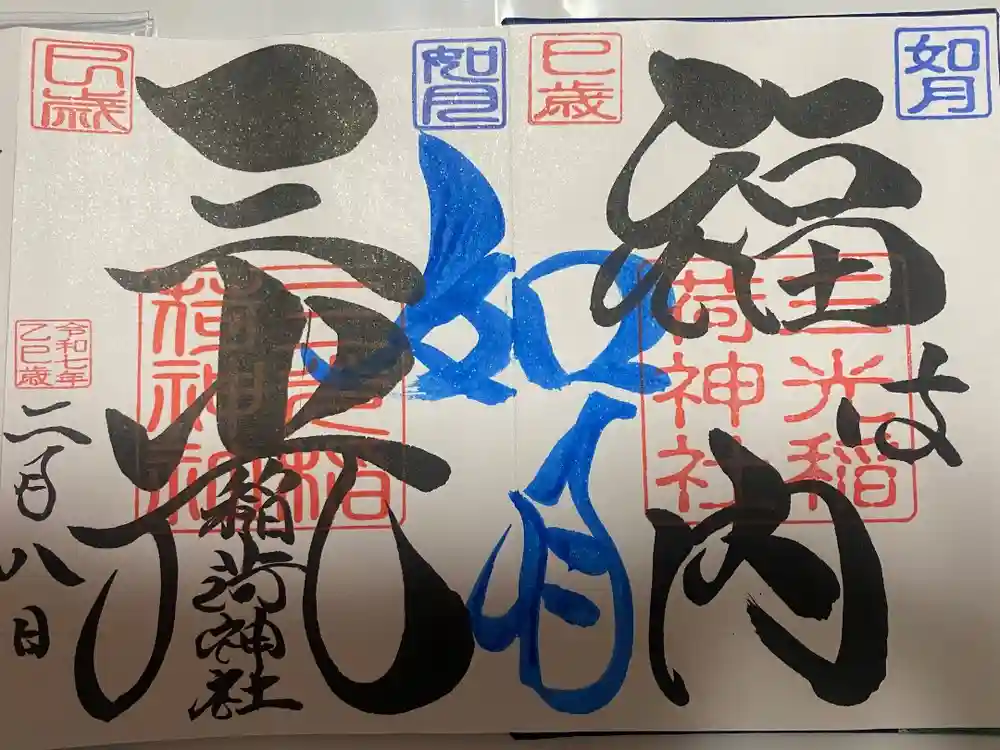 如月
巳歳
福は内
三光稲
荷神社
如月
如月
巳歳
三光
稲荷神社
三光稲
荷神社
令和七年
乙巳歳
二月八日